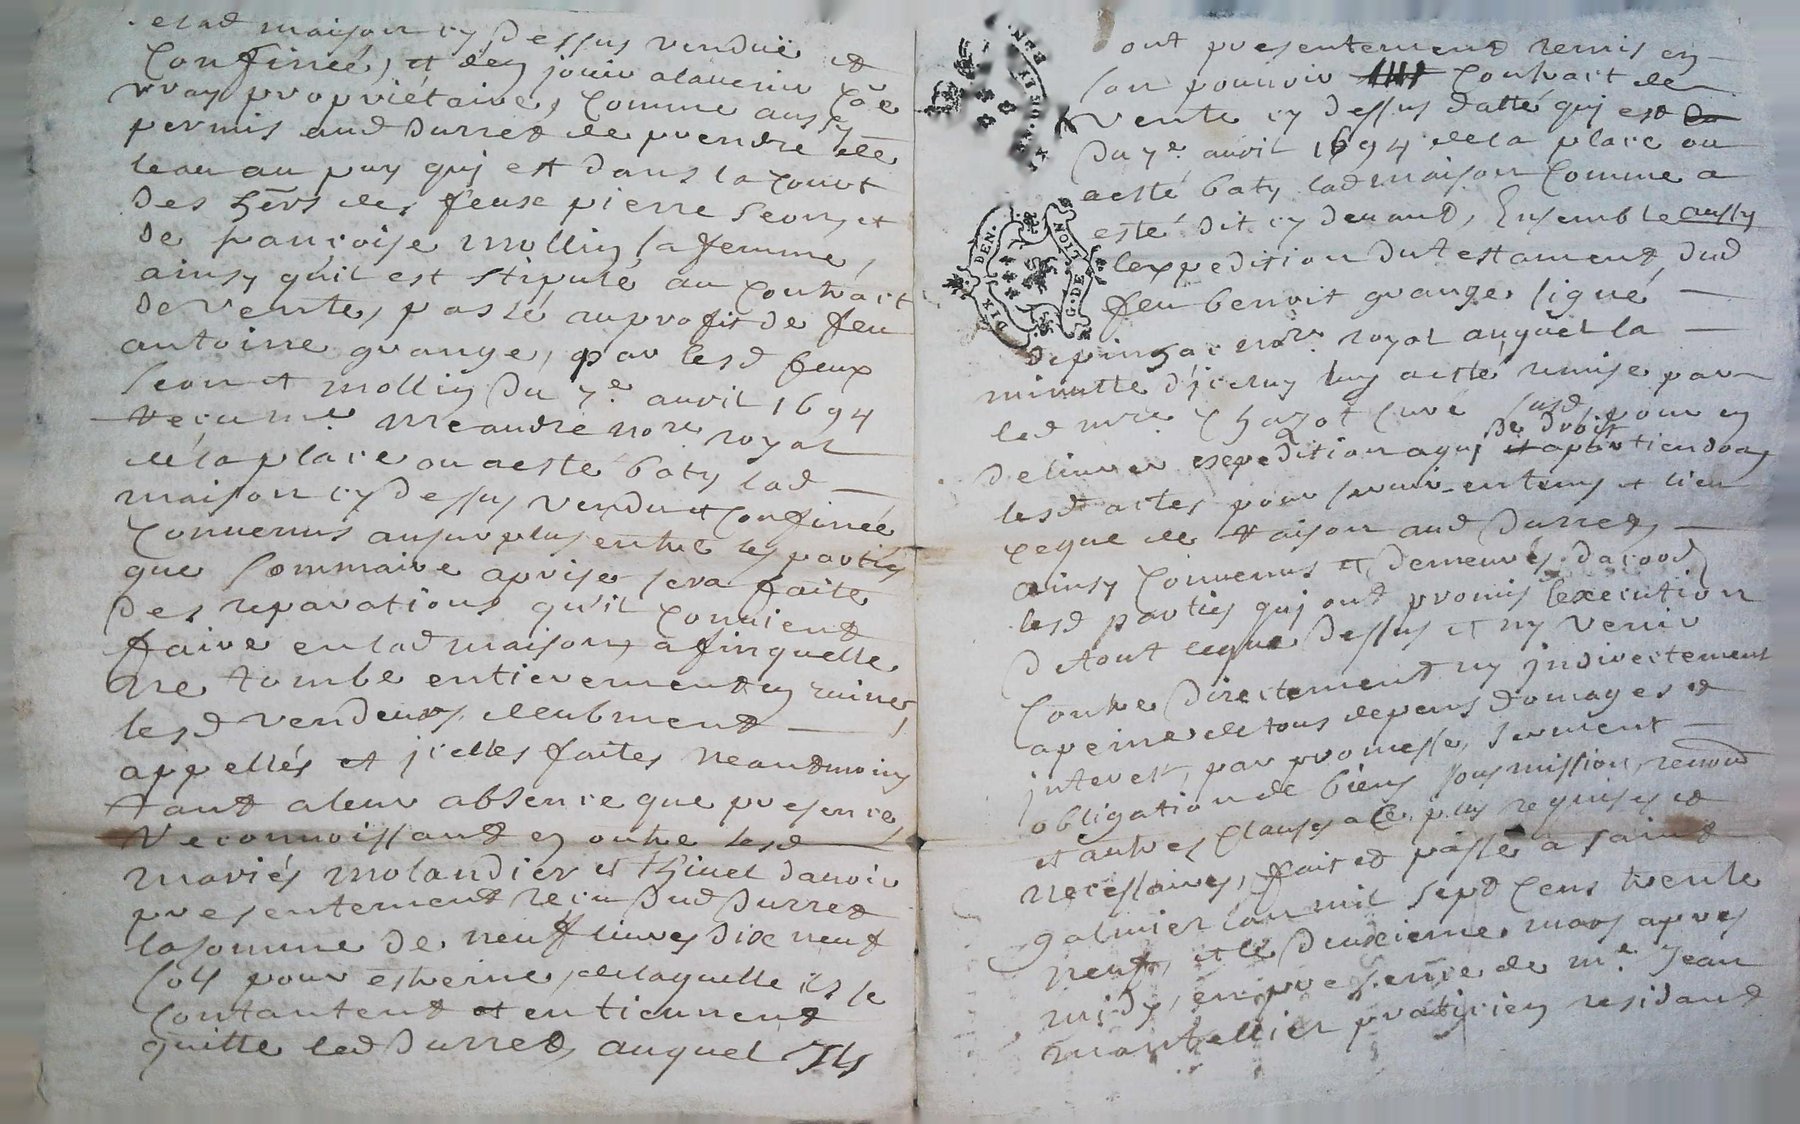 elad maison cy dessus venduë et
Confinée, et den jouir alavenir Co͠e
vray propriétaire, Comme aussy
permis aud Durret de prendre de
leau au puy quj est dans la Court
des hers de, feux pierre seon et
de françoise mollin sa femme,
ainsy quil est stipulé au Contract
de Vente, passé auprofit de feu
antoine grange, par lesd feux
seon et mollin du 7.e avril 1694
Recu me. meandre nore royal
dela place ou aesté baty lad
maison cy dessus vendu et confinée
Convenus ausurplus entre les parties
que sommaire aprise sera faite
des reparations qu'il Convient
faire enlad maison, afinquelle
ne tombe entierement en ruine,
lesd vendeurs deubment
appellés et jcelles faites neantmoins
tant aleur absence que presence,
Reconnoissant en outre lesd
mariés molandier et thivel davoir
presentement reçu dud Durret
lasomme de neuf livres dix neuf
sols pour estreine, delaquelle ils se
Contantent et entiennent
quitte led Durret, auquel Jls
ont presentement remis en
son pouvoir Contract de
vente cy dessus datté quj est
du 7e. avril 1694 dela place ou
aesté baty lad maison Comme a
esté dit cy devant, Ensemble aussy
lexpedition dutestament dud
feu benoit grange signé
nore. royal auquel la
minutte d'jceluy luy aesté remise par
led mre. Chazot curé susd, pour en
delivrer expedition a quj de droit apartiendra
lesd actes pour servir entems et lieu
ceque de raison aud Durret,
ainsy Convenus et demeurés dacord
lesd parties quj ont promis lexecution
detout ceque dessus et ny venir
Contre directement ny jndirectement
apeine detous depens domages et
jnterest, par promesse, serment
obligation de biens sousmission, renond
et autres Clauses ace plus requises et
necessaires, fait et passé a saint
galmier lan mil sept Cens trente
neuf, et le deuxieme mars apres
midy, en presence de me. Jean
montellier praticien residant
DIX DEN.
G. DE LION